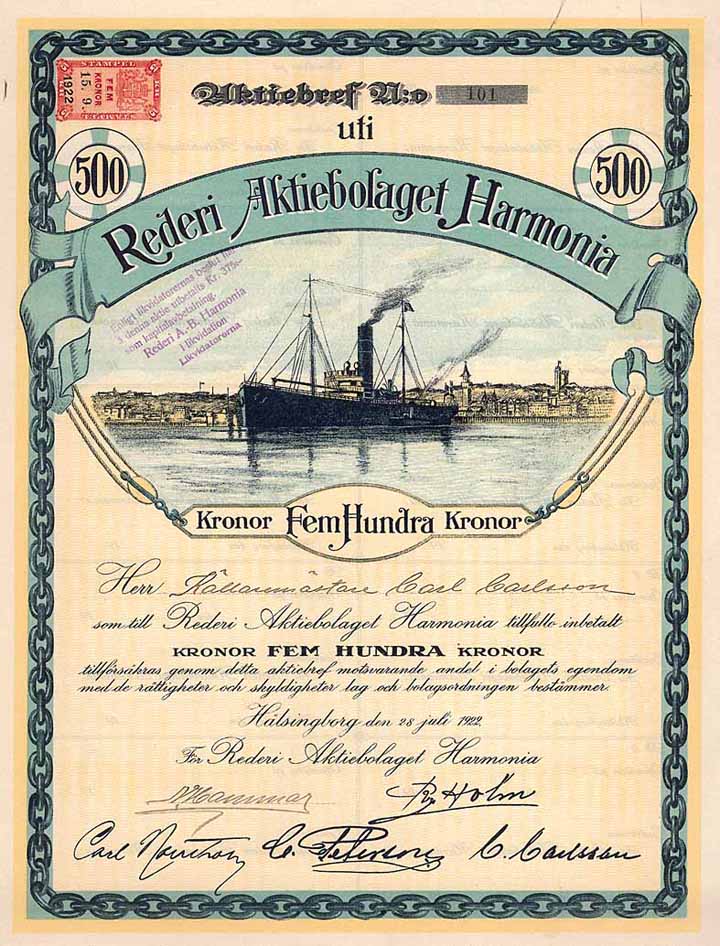 STÄMPEL
5 KR 5
FEM
KRONOR
15. 9.
1922
Aktiebref N:o 101
uti
500 500
Rederi Aktiebolaget Harmonia
Enligt likvidatorernas beslut har
å denna aktie utbetalts Kr. 375:-
som kapitalavbetalning.
Rederi A.-B. Harmonia
i likvidation
Likvidatorerna
Kronor Fem Hundra Kronor
Herr Källaremästare Carl Carlsson
som till Rederi Aktiebolaget Harmonia tillfullo inbetalt
KRONOR FEM HUNDRA KRONOR
tillförsäkras genom detta aktiebref motsvarande andel i bolagets egendom
med de rättigheter och skyldigheter lag och bolagsordningen bestämmer.
Hälsingborg den 28 juli 1922.
För Rederi Aktiebolaget Harmonia
N Hammar Holm
Carl C. Peterson C. Carlsson